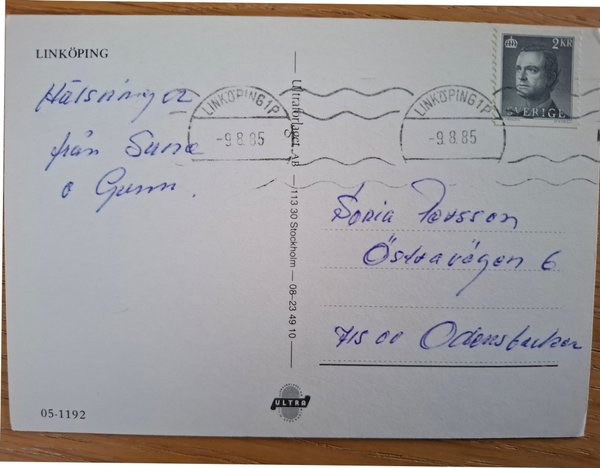 LINKÖPING
Hälsningar
från Sune
o Gunn.
05-1192
Ultraförlaget AB — 113 30 Stockholm — 08-23 49 10
ULTRA
LINKÖPING 1 P
-9.8.85
LINKÖPING 1 P
-9.8.85
2 KR
SVERIGE
Sonia Persson
Östravägen 6
715 00 Odensbacken